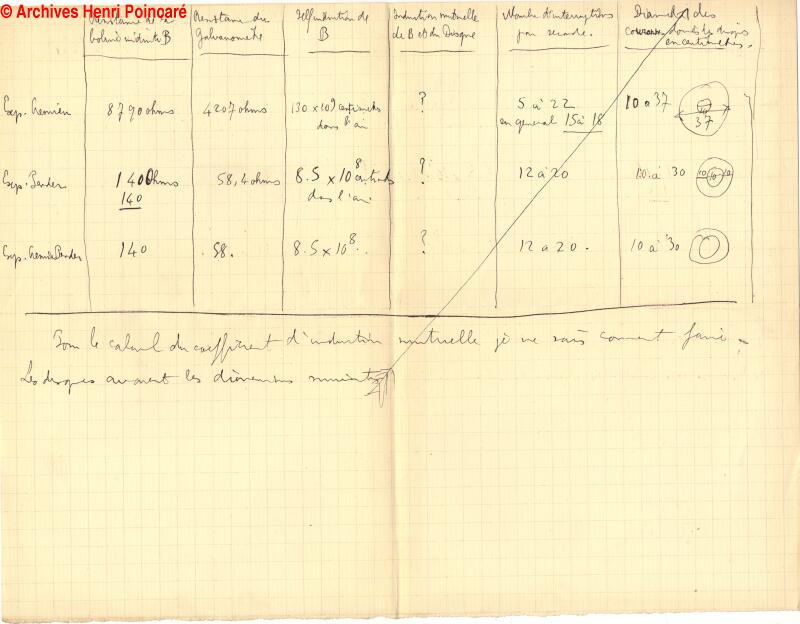 © Archives Henri Poinoaré
Résistance de la bobine induite B
Résistance du Galvanomètre
Selfinduction de B
Induction mutuelle de B et du Disque
Nombre d'interruptions par seconde.
Diamètre des couronnes dont les disques en centimètres.
Exp. Crémieu
8790 ohms
4207 ohms
130 x 10⁹ centimètres dans l'air
?
5 à 22
en général 15 à 18
10 à 37
37
Exp. Pender
140 ohms
140
58,4 ohms
8.5 x 10⁸ centimètres
dans l'air
?
12 à 20
10 à 30
10 10 10
Exp. Crémieu Pender
140
58.
8.5 x 10⁸.
?
12 à 20.
10 à 30
Pour le calcul du coefficient d'induction mutuelle je ne sais comment faire.
Les disques avaient les dimensions suivantes